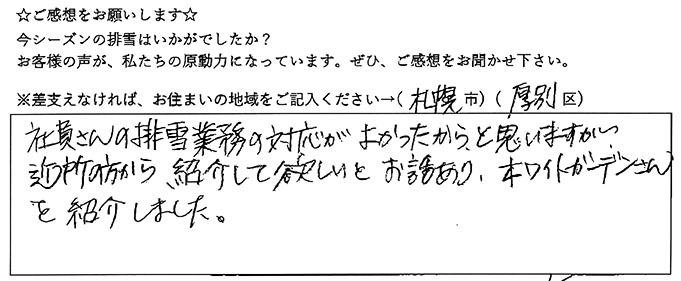 ☆ご感想をお願いします☆
今シーズンの排雪はいかがでしたか？
お客様の声が、私たちの原動力になっています。ぜひ、ご感想をお聞かせ下さい。
※差支えなければ、お住まいの地域をご記入ください→（札幌市）（厚別区）
社員さんの排雪業務の対応がよかったからと思いますが、
近所の方から紹介して欲しいとお話あり、ホワイトガーデンさん
を紹介しました。